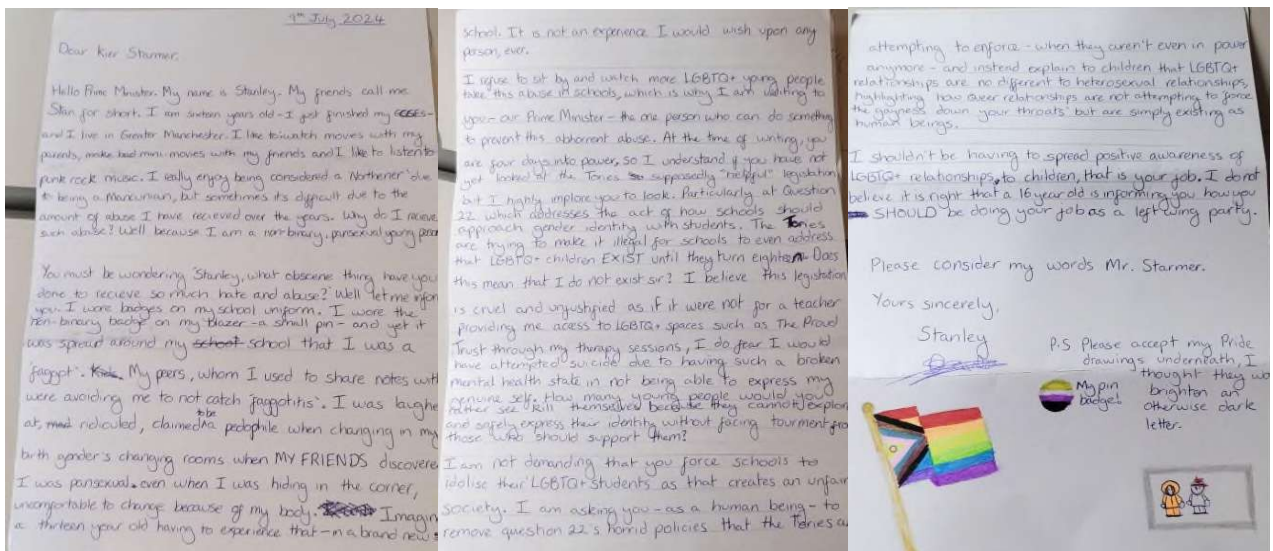 9th July, 2024
Dear Kier Starmer.
Hello Prime Minister. My name is Stanley. My friends call me
Stan for short. I am sixteen years old - I just finished my GCSEs -
and I live in Greater Manchester. I like to watch movies with my
parents, make bad mini-movies with my friends and I like to listen to
punk rock music. I really enjoy being considered a 'Northener' due
to being a Mancunian, but sometimes its difficult due to the
amount of abuse I have recieved over the years. Why do I recieve
such abuse? Well because I am a non-binary, pansexual young person
You must be wondering 'Stanley, what obscene thing have you
done to recieve so much hate and abuse?' Well let me inform
you. I wore badges on my school uniform. I wore the
non-binary badge on my blazer - a small pin - and yet it
was spread around my school school that I was a
'faggot'. My peers, whom I used to share notes with
were avoiding me to not catch 'faggotitis'. I was laughe
at, ridiculed, claimed to be a pedophile when changing in my
birth gender's changing rooms when MY FRIENDS discovere
I was pansexual. even when I was hiding in the corner,
uncomfortable to change because of my body. Imagin
a thirteen year old having to experience that - in a brand new
school. It is not an experience I would wish upon any
person, ever.
I refuse to sit by and watch more LGBTQ+ young people
take this abuse in schools, which is why I am writing to
you - our Prime Minister - the one person who can do something
to prevent this abhorrent abuse. At the time of writing, you
are four days into power, so I understand if you have not
yet looked at the Tories supposedly "helpful" legislation
but I highly implore you to look. Particularly at Question
22 which addresses the act of how schools should
approach gender identity with students. The Tories
are trying to make it illegal for schools to even address
that LGBTQ+ children EXIST until they turn eighteen. Does
this mean that I do not exist sir? I believe this legislation
is cruel and unjustified as if it were not for a teacher
providing me acess to LGBTQ+ spaces such as The Proud
Trust through my therapy sessions, I do fear I would
have attempted suicide due to having such a broken
mental health state in not being able to express my
genuine self. How many young people would you
rather see kill themselves because they cannot explore
and safely express their identity without facing tourment fro
those who should support them?
I am not demanding that you force schools to
idolise their LGBTQ+ students as that creates an unfair
society. I am asking you - as a human being - to
remove question 22's horrid policies that the Tories a
attempting to enforce - when they aren't even in power
anymore - and instead explain to children that LGBTQ+
relationships are no different to heterosexual relationships,
highlighting how queer relationships are not attempting to 'force
the gayness down your throats' but are simply existing as
human beings.
I shouldn't be having to spread positive awareness of
LGBTQ+ relationships to children, that is your job. I do not
believe it is right that a 16 year old is informing you how you
SHOULD be doing your job as a left wing party.
Please consider my words Mr. Starmer.
Yours sincerely,
Stanley
P.S Please accept my Pride
drawings underneath, I
thought they wo
brighten an
otherwise dark
letter.
My pin
badge!